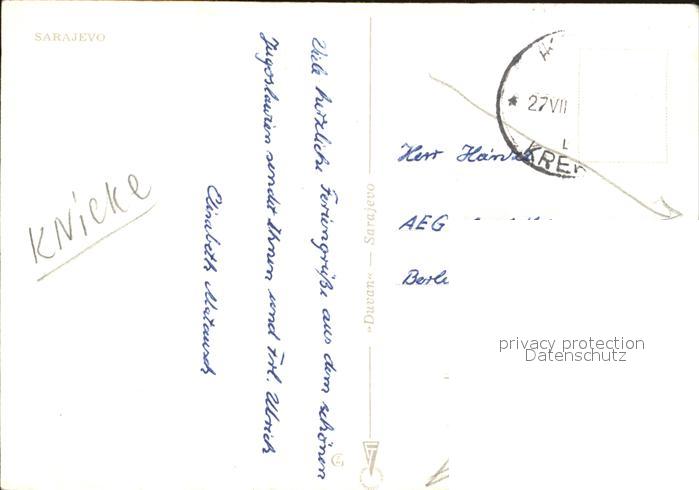 SARAJEVO
Viele herzliche Feriengrüße aus dem schönen
Jugoslawien sendet Ihnen und Frl. Ulrich
Elisabeth Matausch
KNICKE
"Duvan" — Sarajevo
* 27 VII
KRE
Herr
AEG
Berli
privacy protection
Datenschutz